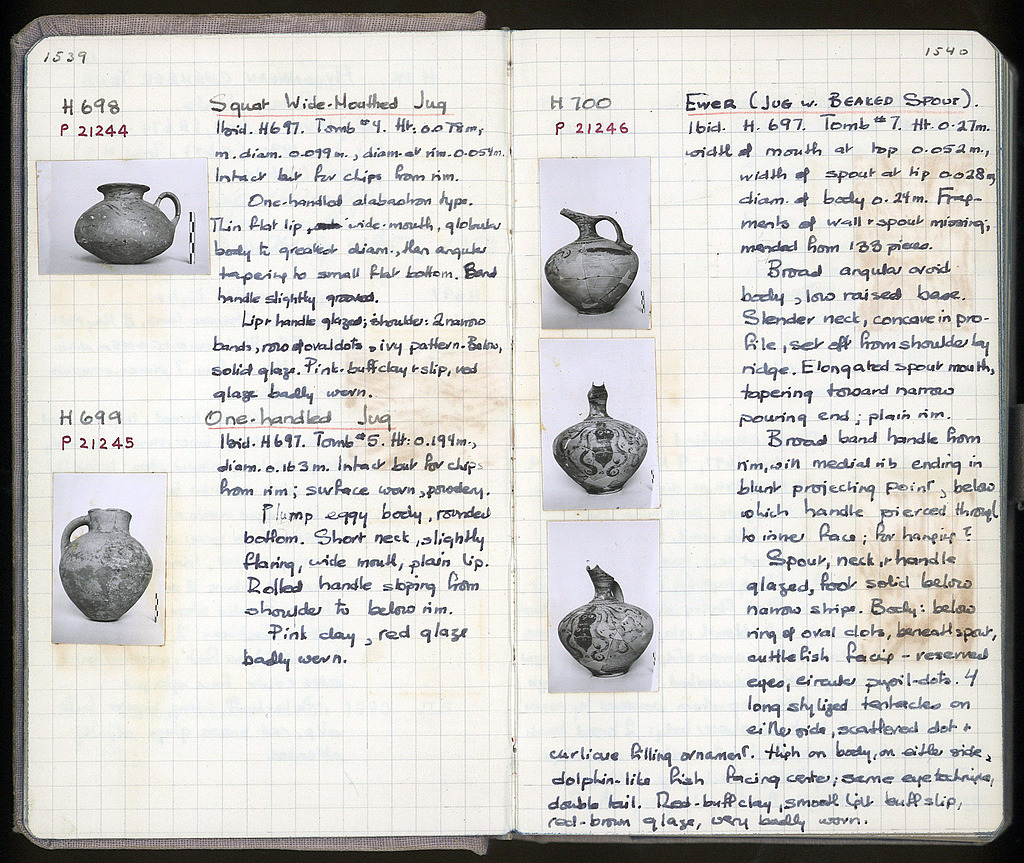 1539
H 698
P 21244
Squat Wide-Mouthed Jug
Ibid. H697. Tomb #4. Ht. 0.078m,
m. diam. 0.099 m., diam. at rim. 0.054m.
Intact but for chips from rim.
One-handled alabastron type.
Thin flat lip, wide-mouth, globular
body to greatest diam., then angular
tapering to small flat bottom. Band
handle slightly grooved.
Lip + handle glazed; shoulder: 2 narrow
bands, row of oval dots, ivy pattern. Below,
solid glaze. Pink-buff clay + slip, red
glaze badly worn.
H 699
P 21245
One-handled Jug
Ibid. H697. Tomb #5. Ht. 0.194m.,
diam. 0.163 m. Intact but for chips
from rim; surface worn, powdery.
Plump eggy body, rounded
bottom. Short neck, slightly
flaring, wide mouth, plain lip.
Rolled handle sloping from
shoulder to below rim.
Pink clay, red glaze
badly worn.
1540
H 700
P 21246
Ewer (Jug w. Beaked Spout).
Ibid. H. 697. Tomb #7. Ht. 0.27m.
width of mouth at top 0.052 m.,
width of spout at tip 0.028m,
diam. of body 0.24m. Frag-
ments of wall + spout missing,
mended from 133 pieces.
Broad angular ovoid
body, low raised base.
Slender neck, concave in pro-
file, set off from shoulder by
ridge. Elongated spout mouth,
tapering toward narrow
pouring end; plain rim.
Broad band handle from
rim, with medial rib ending in
blunt projecting point, below
which handle pierced through
to inner face; for hanging?
Spout, neck, + handle
glazed, foot solid below
narrow stripe. Body: below
ring of oval dots, beneath spout,
cuttlefish facing - reserved
eyes, circular pupil-dots. 4
long stylized tentacles on
either side, scattered dot +
curlicue filling ornament. High on body, on either side,
dolphin-like fish facing center; same eye technique,
double tail. Red-buff clay, smooth light buff slip,
red-brown glaze, very badly worn.